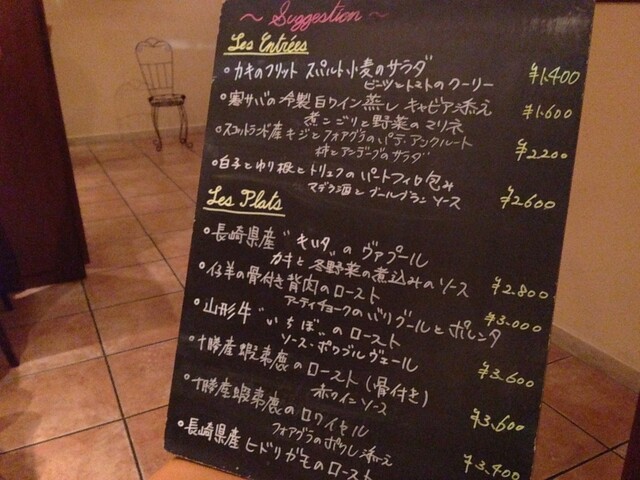 ~ Suggestion ~
Les Entrées
・カキのフリット スペルト小麦のサラダ
ビーツとトマトのクーリー ¥1.400
・寒サバの冷製白ワイン蒸し キャビア添え
煮こごりと野菜のマリネ ¥1.600
・スコットランド産キジとフォアグラのパテ・アンクルート
柿とアンディーブのサラダ ¥2200
・白子とゆり根とトリュフのパートフィロ包み
マデラ酒とブールブランソース ¥2600
Les Plats
・長崎県産"キハタ"のヴァプール
カキと冬野菜の煮込みのソース ¥2.800
・仔羊の骨付き背肉のロースト
アーティチョークのバリグールとポレンタ ¥3,000
・山形牛"いちぼ"のロースト
ソース・ポワブルヴェール ¥3,600
・十勝産蝦夷鹿のロースト(骨付き)
赤ワインソース ¥3,600
・十勝産蝦夷鹿のロワイヤル
フォアグラのポワレ添え ¥3,400
・長崎県産ヒドリガモのロースト